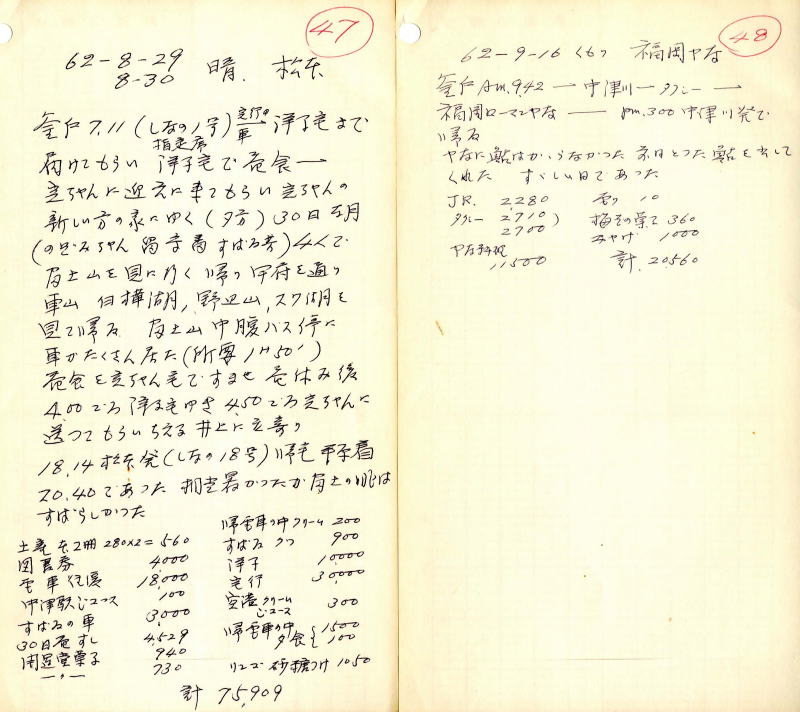 47
62-8-29
8-30 晴. 松本
釜戸 7.11 (しなの1号) 洋子宅まで
指定席
届けてもらい 洋子宅で昼食ー
ちゃんに迎えに来てもらい ちゃんの
新しい方の家にゆく (夕方) 30日
(のぞみちゃん すばる ) 4人で
富士山を見に行く 帰り甲府を通り
車山 白樺湖, 野辺山, スワ湖を
見て帰る 富士山中腹バス停に
車がたくさん居た (所要 1H50')
昼食を ちゃん宅ですませ 昼休み後
4.00ごろ洋子宅ゆき 4.50ごろ ちゃんに
送ってもらい 井上に立寄り
18.14 松本発 (しなの18号) 帰宅 着
20.40であった 相当暑かったが富士の眺は
すばらしかった
土産 本2冊 280×2= 560
図書券 4000
電車往復 18,000
中津駅ジュース 100
すばるの車 3,000
30日昼すし 4,529
開運堂菓子 940
〃 730
帰電車の中クリーム 200
すばる クツ 900
洋子 10000
定行 30,000
クリーム
ジュース 300
帰電車の中 1500
夕食 100
リンゴ砂糖つけ 1050
計 75,909
48
62-9-16 くもり 福岡ヤな
釜戸 Am.9.42 ー 中津川ー タクシー ー
福岡ローマンヤな ー pm.3.00 中津川発で
帰る
ヤなに鮎はかからなかった 前日とった鮎を出して
くれた すずしい日であった
J.R. 2,280
タクシー 2,710
2700
ヤな料理 11500
10
360
みやげ 1000
計. 20,560